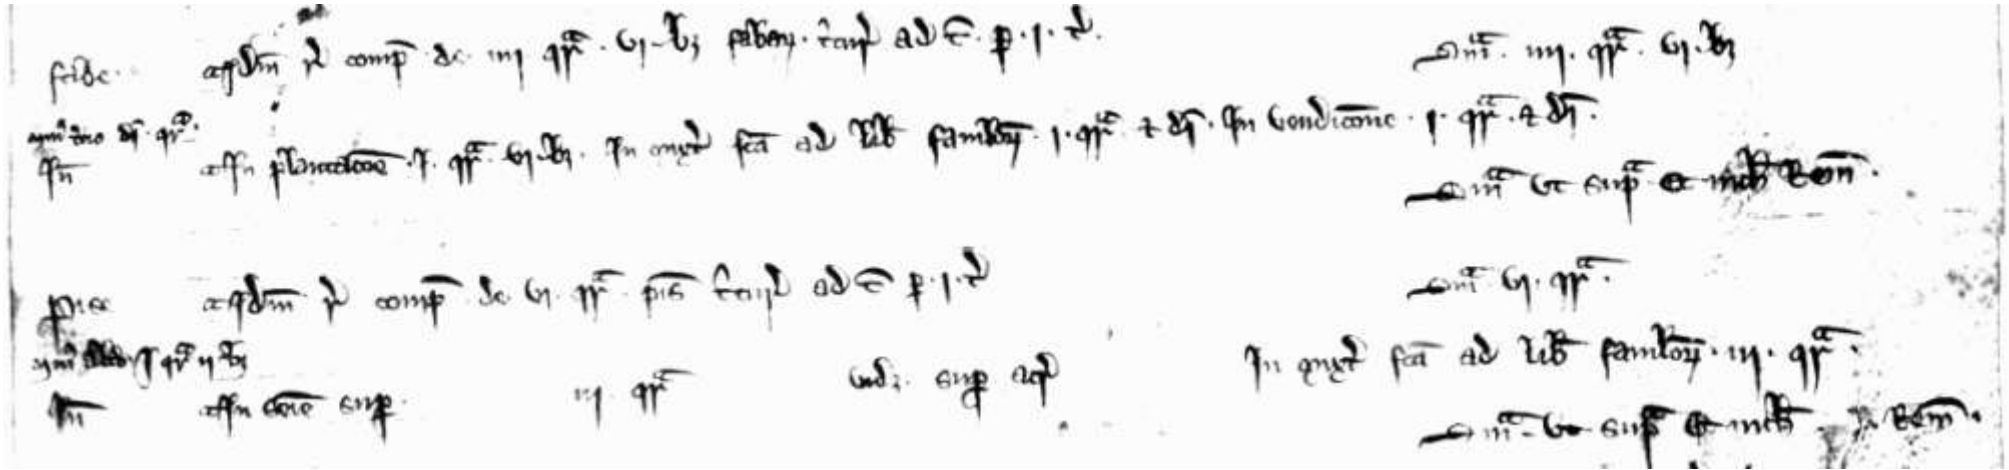 fabe. Idm r comp de iiij qr. vj. bz fabar. t̄cur ad t̄. p. j. t.
Sma. iiij. qr. vj. bz
dī. qr.
In In plantacōe. j. qr. vj. bz. In mixt fca ad lib famlor. j. qr. & dī. In vendicōne. j. qr. & dī.
Sma ut sup et nich Rem.
pise Idm r comp de vj qr. pis t̄cur ad t̄ p. j. t
Sma vj. qr.
j qr ij bz
In In sem sup. iij qr sup In mixt fca ad lib famlor. iij. qr.
Sma. ut sup et nich Rem.